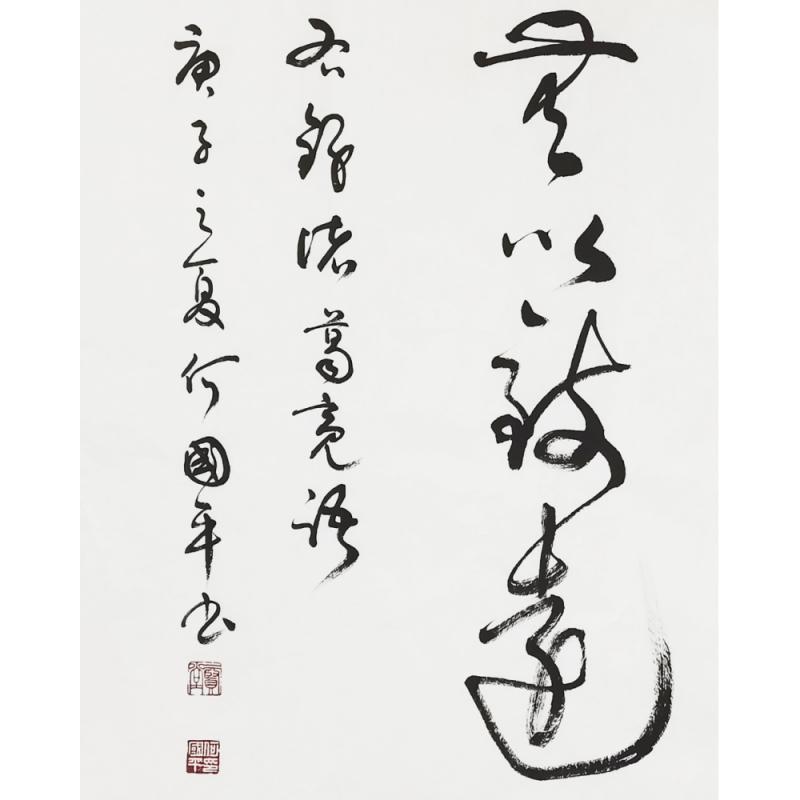 無以致遠
右錄諸葛亮語
庚子之夏何國平書